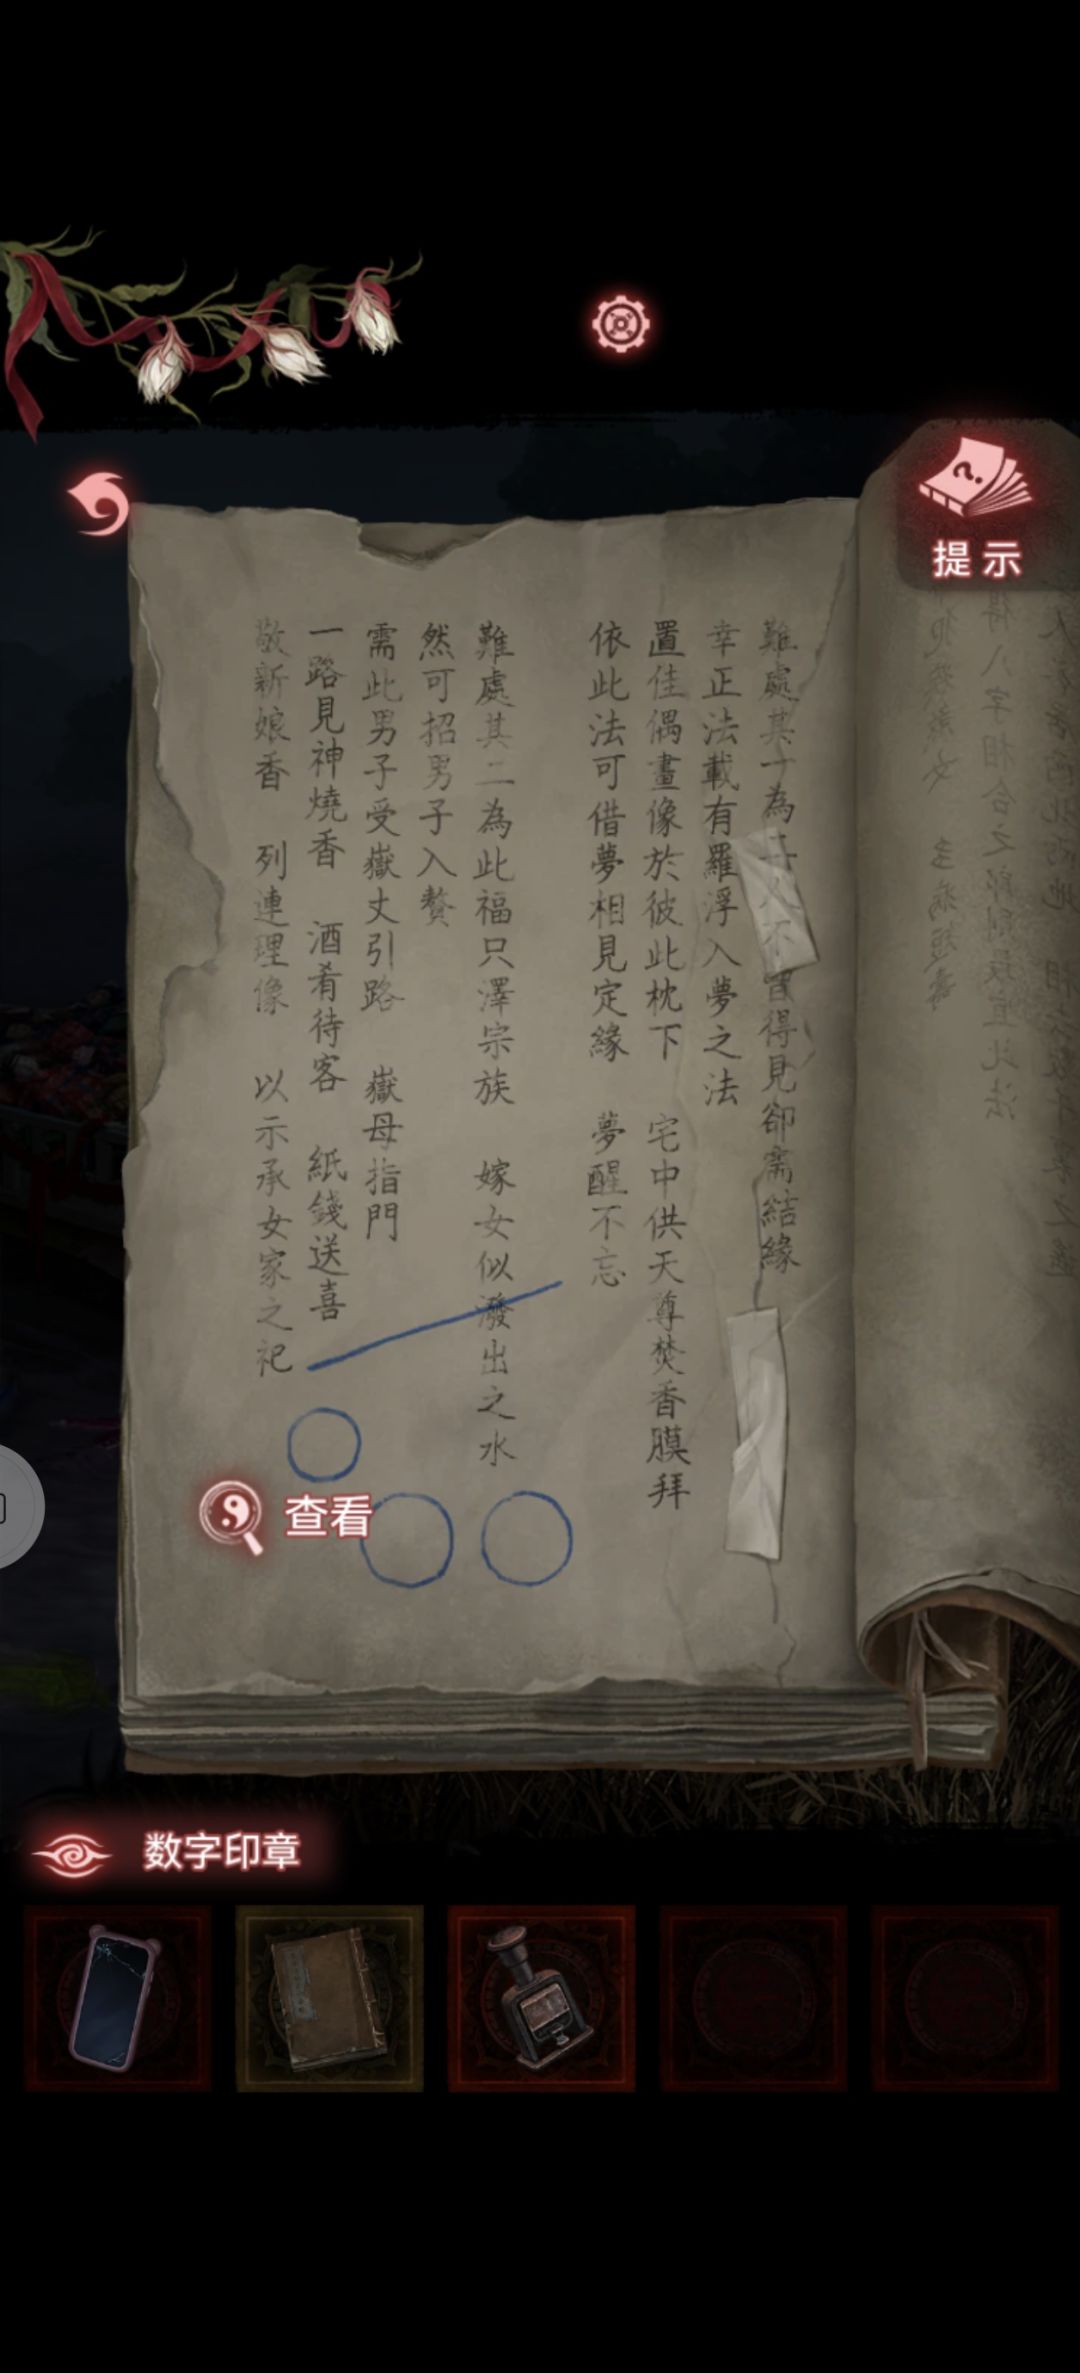 提示
難處其一為二人不曾得見卻需結緣
幸正法載有羅浮入夢之法
置佳偶畫像於彼此枕下 宅中供天尊焚香膜拜
依此法可借夢相見定緣 夢醒不忘
難處其二為此福只澤宗族 嫁女似潑出之水
然可招男子入贅
需此男子受嶽丈引路 嶽母指門
一路見神燒香 酒肴待客 紙錢送喜
敬新娘香 列連理像 以示承女家之祀
查看
数字印章